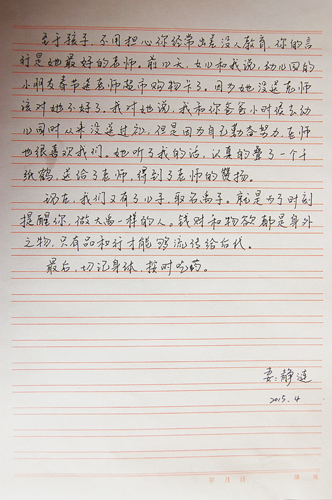 关于孩子，不用担心你经常出差没人教育，你的言
行是她最好的老师。前几天，女儿和我说，幼儿园的
小朋友春节送老师超市购物卡了。因为她没送老师
该对她不好了。我对她说，我和你爸爸小时候去幼
儿园时从来没送过礼，但是因为自己勤奋努力，老师
也很喜欢我们。她听了我的话，认真的叠了一个千
纸鹤，送给了老师，得到了老师的赞扬。
现在，我们又有了儿子，取名禹子。就是为了时刻
提醒你，做大禹一样的人。钱财和物欲都是身外
之物，只有品和行才能够流传给后代。
最后，切记身体，按时吃药。
妻：静涟
2015.4
年 月 日